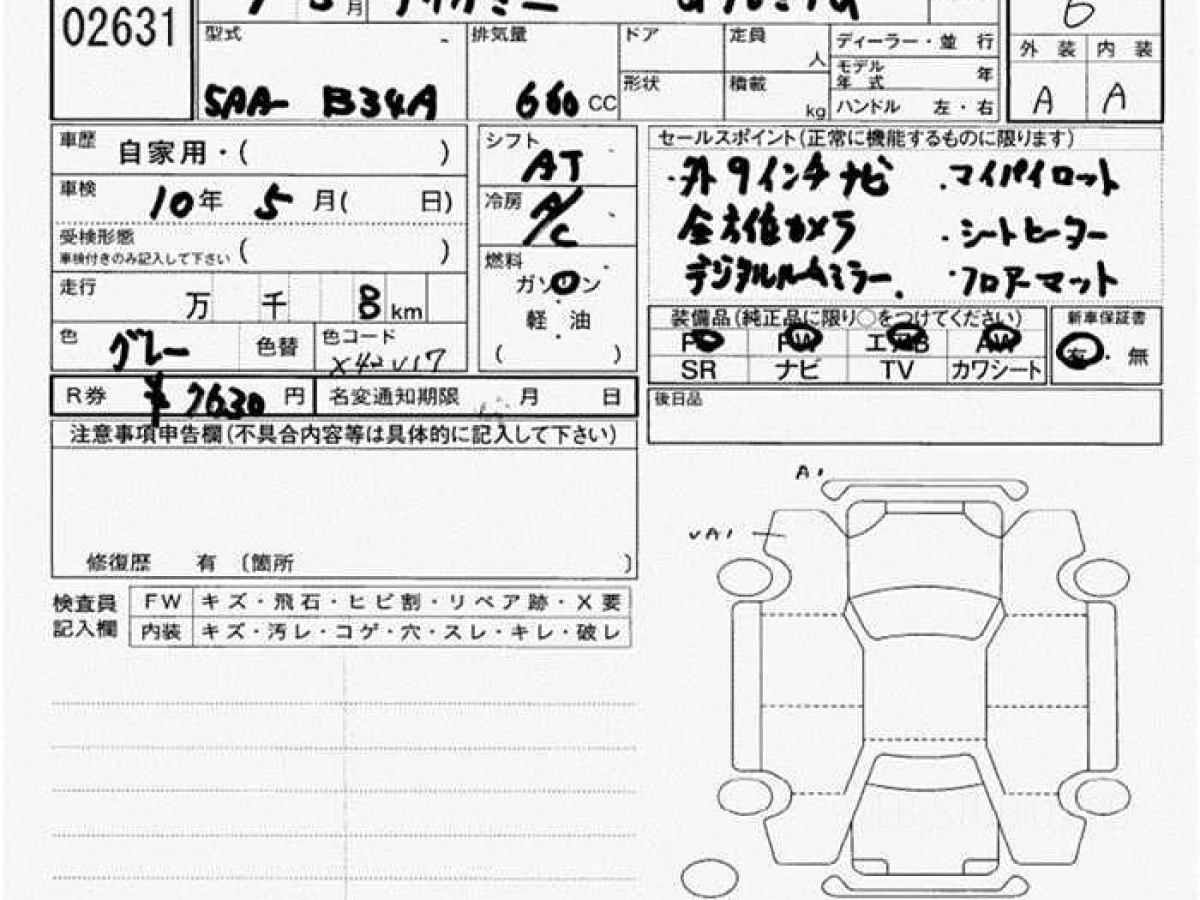 02631
月
6
型式
5AA- B34A
排気量
660 CC
ドア
定員
人
形状
積載
kg
ディーラー・並 行
モデル年式 年
ハンドル 左・右
外 装 内 装
A A
車歴 自家用・( )
車検 10年 5月( 日)
受検形態
車検付きのみ記入して下さい ( )
走行 万 千 8 km
色 グレー 色替 色コード X42 V17
シフト AT
冷房 A/C
燃料
ガソリン
軽 油
( )
セールスポイント(正常に機能するものに限ります)
・外9インチナビ ・マイパイロット
全方位カメラ ・シートヒーター
デジタルルームミラー ・フロアーマット
装備品(純正品に限り○をつけてください)
PS PW エアB AW
SR ナビ TV カワシート
新車保証書
有・無
R券 ¥7630 円 名変通知期限 月 日
後日品
注意事項申告欄(不具合内容等は具体的に記入して下さい)
修復歴 有 〔箇所 〕
検査員記入欄
FW キズ・飛石・ヒビ割・リペア跡・X要
内装 キズ・汚レ・コゲ・穴・スレ・キレ・破レ
A1
UA1